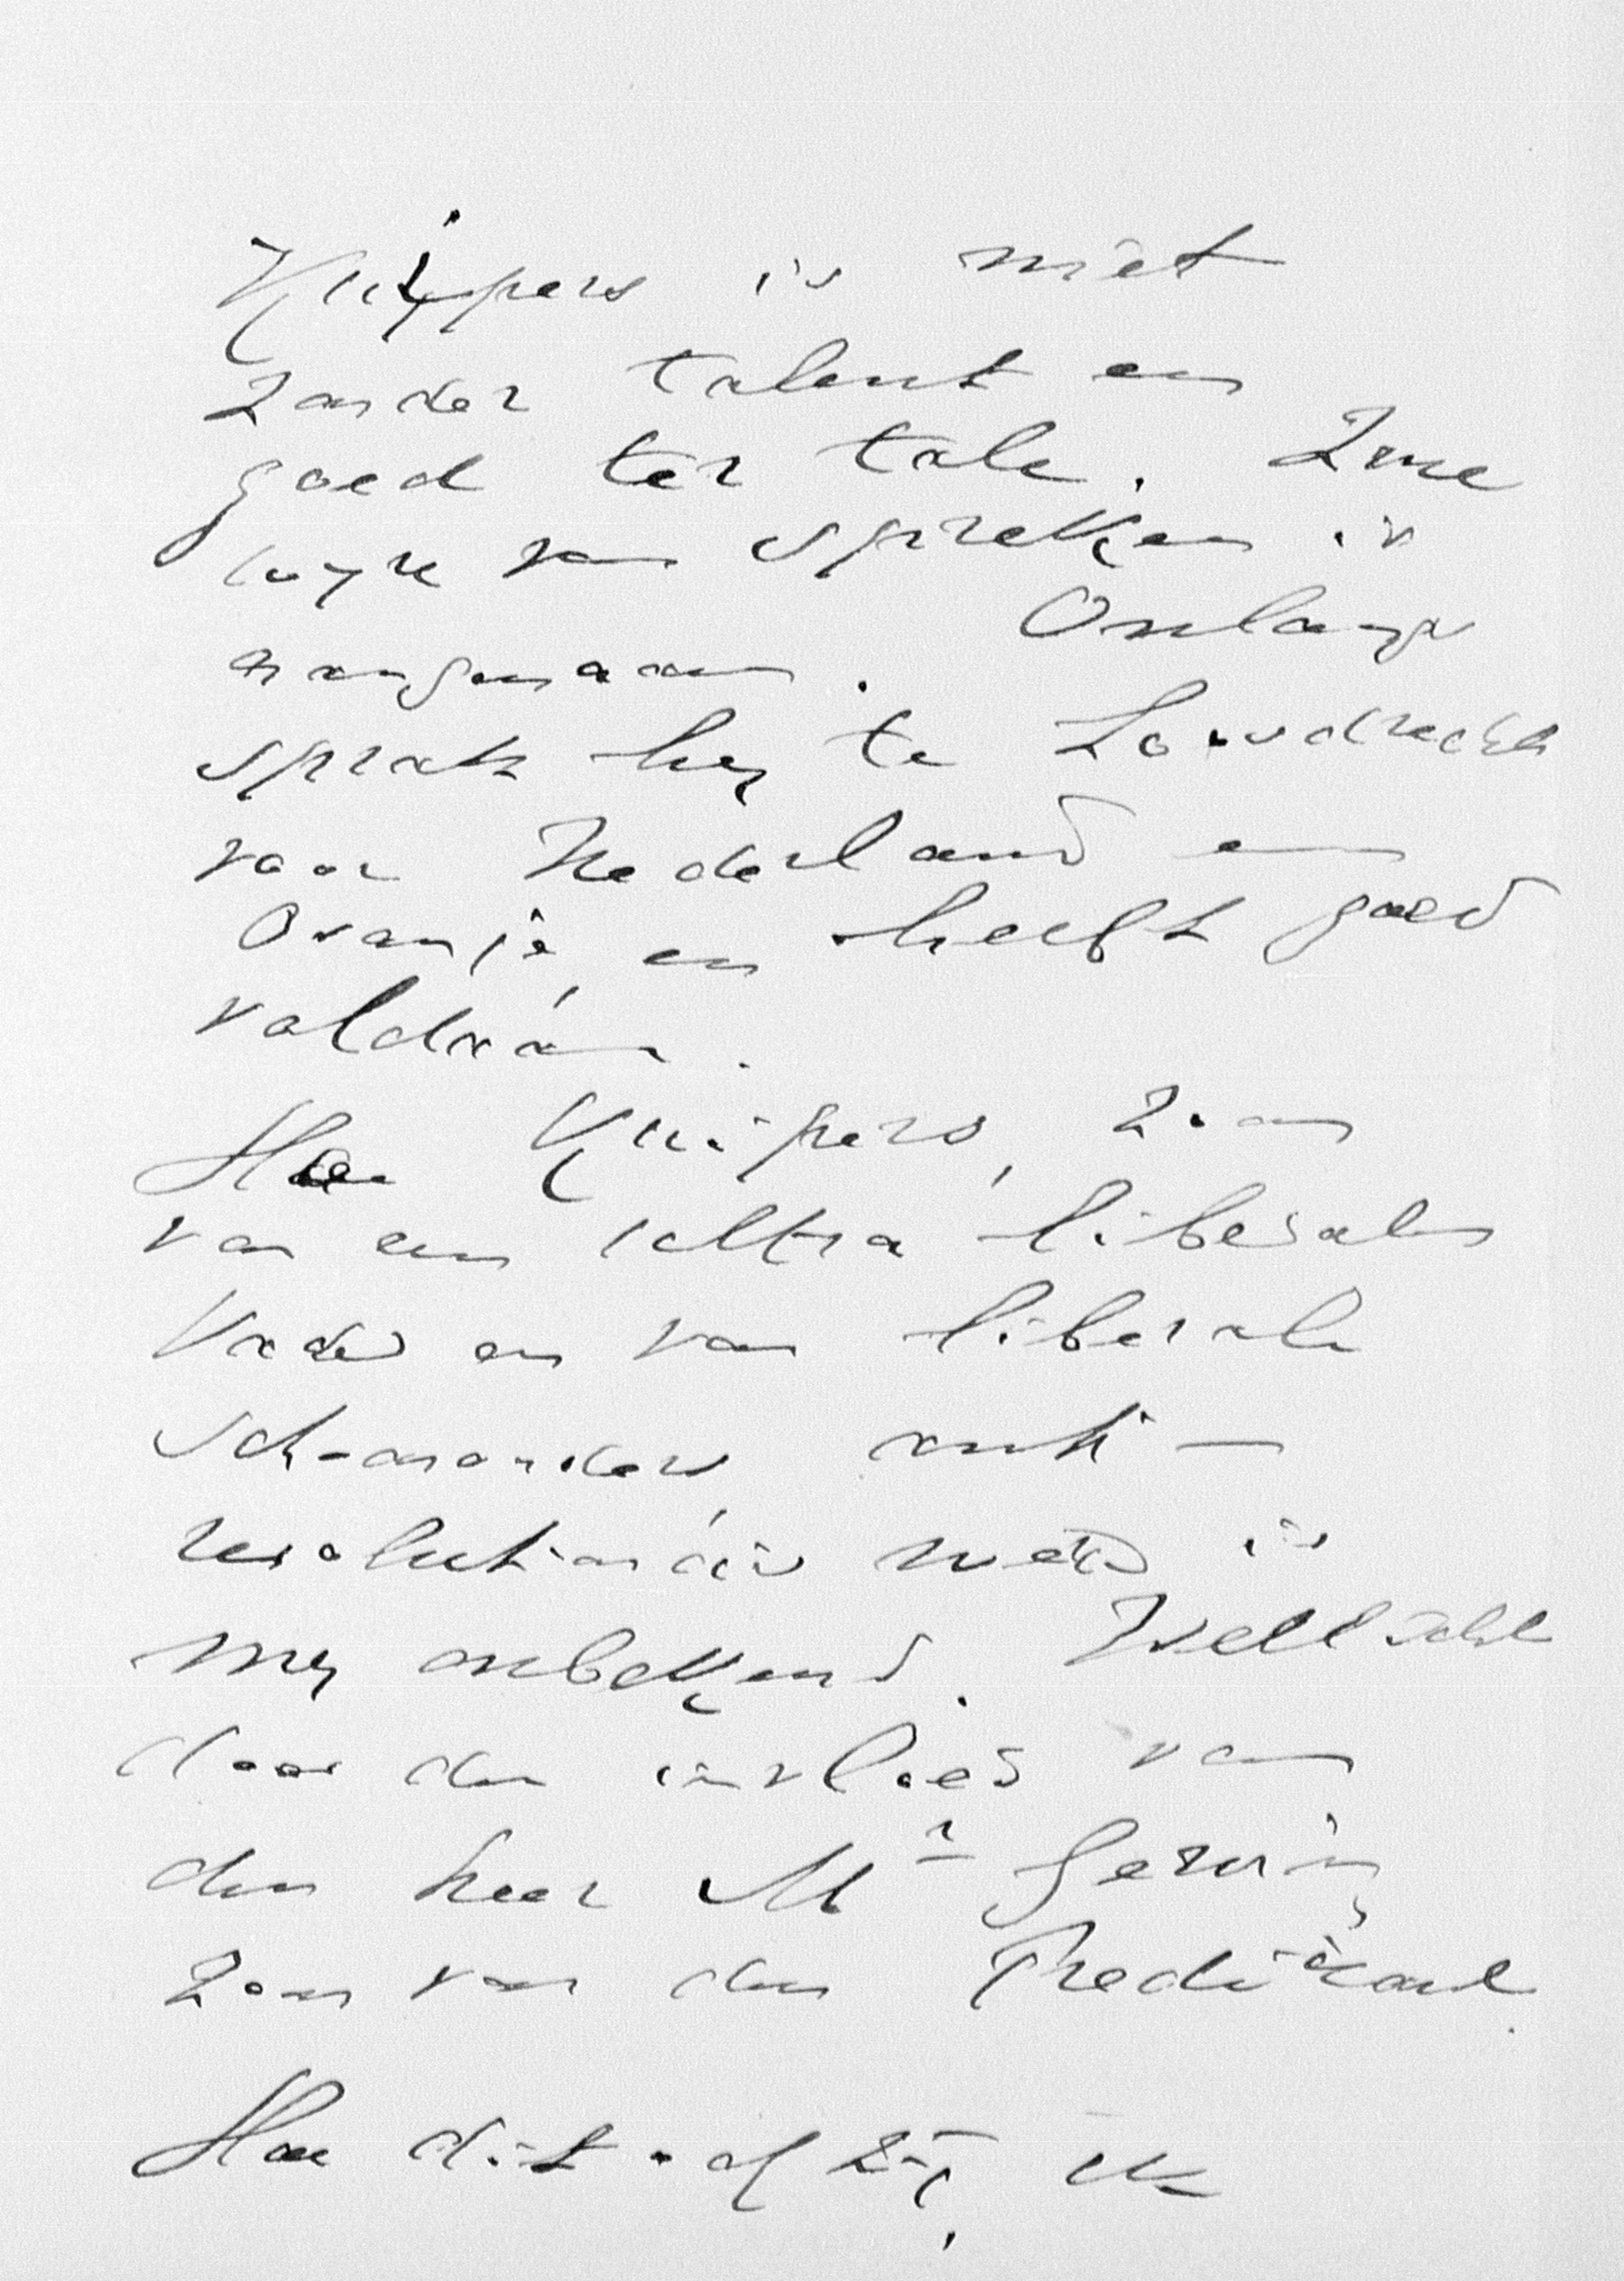 Kuijpers is niet
zonder talent en
goed ter tale. Zijne
wijze van spreken is
aangenaam. Onlangs
sprak hij te Loosdrecht
voor Nederland en
Oranje, en heeft goed
voldaan.
Hoe Kuipers, zoon
van een ultra liberalen
Vader en van liberale
schoonouders anti-
revolutionair werd is
mij onbekend. Wellicht
door den invloed van
den heer Mr Gerrin
zoon van den Predikant.
Hoe dit ook zij, ik